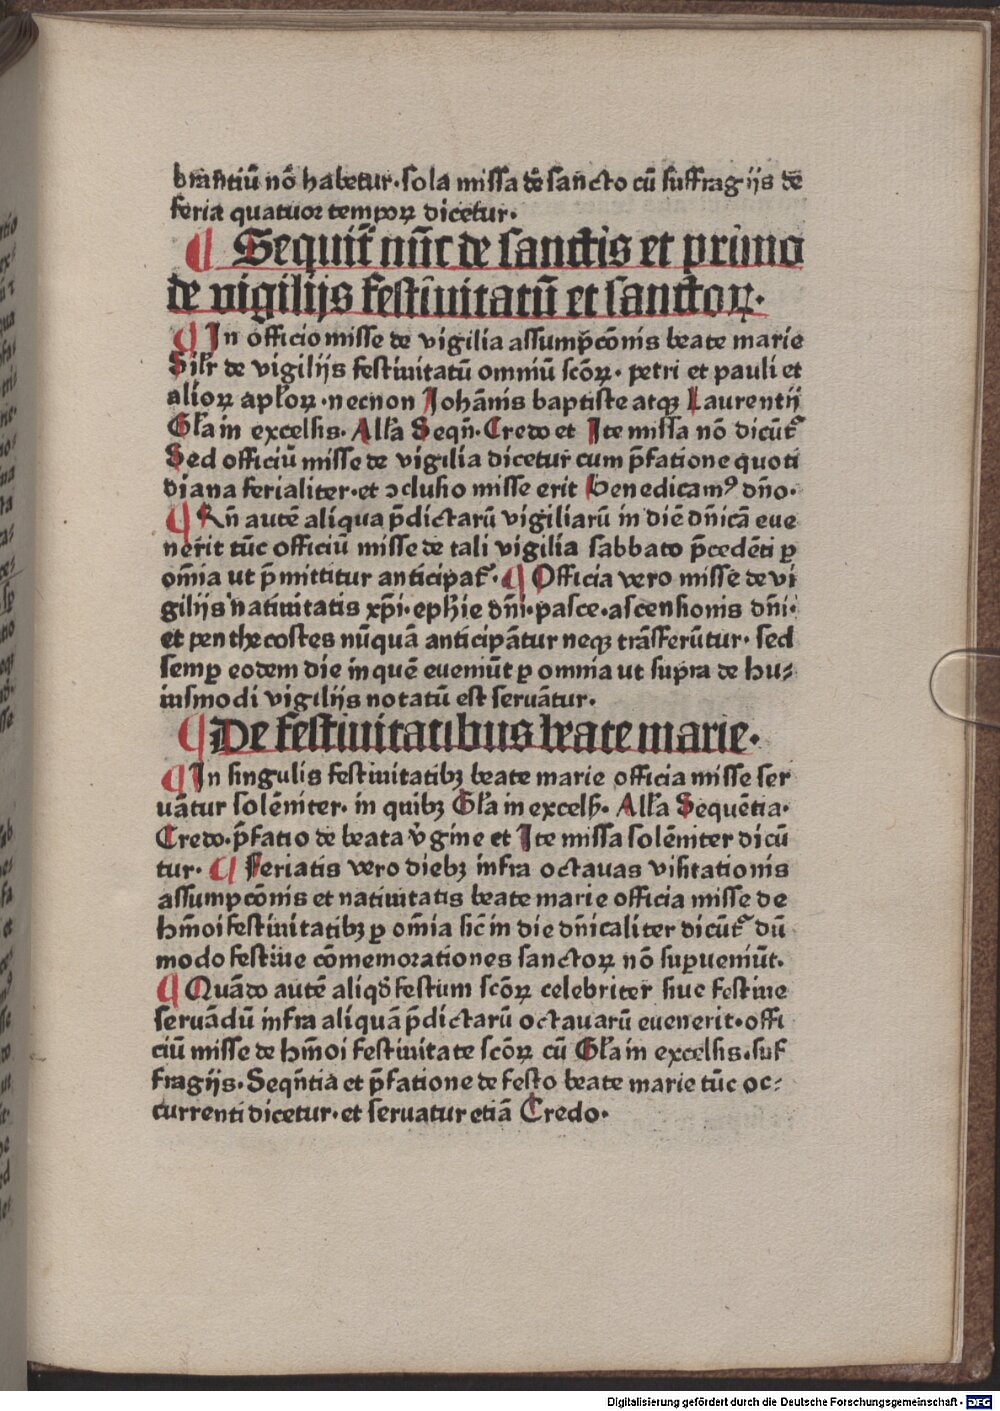 brantiū nō habetur·sola missa de sancto cū suffragijs de
feria quatuor temporꝝ dicetur·
¶ Sequit᷑ nūc de sanctis et primo
de vigilijs festiuitatū et sanctoꝝ·
¶ In officio misse de vigilia assump̄cōnis beate marie
Silr̄ de vigilijs festiuitatū omniū scōꝝ· petri et pauli et
alioꝝ apl̄oꝝ·necnon Johānis baptiste atqꝫ Laurentij
Gl̄a in excelsis· All̄a Seqn̄· Credo et Ite missa nō dicūt᷑
Sed officiū misse de vigilia dicetur cum p̄fatione quoti
diana ferialiter·et ↄclusio misse erit Benedicamꝰ dn̄o·
¶ Qn̄ autē aliqua p̄dictarū vigiliarū in diē dn̄icā eue
nerit tūc officiū misse de tali vigilia sabbato p̄cedēti ꝑ
om̄ia ut p̄mittitur anticipat᷑· ¶ Officia vero misse de vi
gilijs natiuitatis xp̄i·ephie dn̄i·pasce·ascensionis dn̄i·
et penthecostes nūquā anticipātur neqꝫ trāsferūtur· sed
semꝑ eodem die in quē eueniūt ꝑ omnia ut supra de hu⸗
iusmodi vigilijs notatū est seruātur·
¶ De festiuitatibus beate marie·
¶ In singulis festiuitatibꝫ beate marie officia misse ser
uātur solēniter· in quibꝫ Gl̄a in excelsꝭ· All̄a Sequētia·
Credo·p̄fatio de beata v̾gine et Ite missa solēniter dicū
tur· ¶ Feriatis vero diebꝫ infra octauas visitationis
assumpcōnis et natiuitatis beate marie officia misse de
hm̄oi festiuitatibꝫ ꝑ om̄ia sic̄ in die dn̄icaliter dicūt᷑ dū
modo festiue cōmemorationes sanctoꝝ nō suꝑueniūt·
¶ Quādo autē aliqd̄ festum scōꝝ celebriter siue festiue
seruādū infra aliquā p̄dictarū octauarū euenerit·offi
ciū misse de hm̄oi festiuitate scōꝝ cū Gl̄a in excelsis·suf
fragijs·Seqn̄tia et p̄fatione de festo beate marie tūc oc⸗
currenti dicetur·et seruatur etiā Credo·
Digitalisierung gefördert durch die Deutsche Forschungsgemeinschaft - DFG